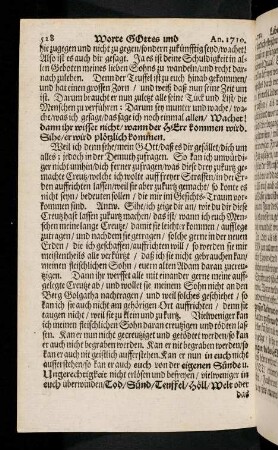 528 Worte GOttes und An. 1710.
die zugegen und nicht zu gegen/sondern zukünfftig seyd/wachet!
Also ist es auch dir gesagt. Ja es ist deine Schuldigkeit in al-
len Geboten meines lieben Sohns zu wandeln/und recht dar-
nach zuleben. Denn der Teuffel ist zu euch hinab gekommen/
und hat einen grossen Zorn / und weiß daß nun seine Zeit um
ist. Darum braucht er nun zuletzt alle seine Tück und List/ die
Menschen zu verführen: Darum sey munter und wache/ wa-
che/was ich gesagt/das sage ich noch einmal allen/ Wachet!
dann ihr wisset nicht/ wann der HErr kommen wird.
Sihe/ er wird plötzlich kommen.
Weil ich denn sehe/mein Gott/daß es dir gefället/dich um
alles : jedoch in der Demuth zufragen. So kan ich unwürdi-
ger nicht umhin/dich ferner zufragen/was diese drey kurtz ge-
machte Creutz/welche ich wolte auff freyer Strassen/in der Er-
den auffrichten lassen/weil sie aber zukurtz gemacht/ so konte es
nicht seyn/ bedeuten sollen/ die mir im Gesichts-Traum vor-
kommen sind. Antw. Sihe/ich zeige dir an/ wie du dir diese
Creutz hast lassen zukurtz machen/ das ist/ wann ich euch Men-
schen meine lange Creutz/ damit sie leichter kommen / aufflege
zutragen / oder machete sie geringer / solche gerne in der neuen
Erden / die ich geschaffen/auffrichten will / so werden sie mir
mehrentheils alle zukurtz seyn/ daß ich sie nicht gebrauchen kan/
meinen fleischlichen Sohn / euern alten Adam daran zucreu-
tzigen. Dann ihr werffet alle einander gerne meine auff-
gelegte Creutz ab/ und wollet sie meinem Sohn nicht an den
Berg Golgatha nachtragen / und weil solches geschihet / so
kan ich sie auch nicht am gehörigen Ort auffrichten/ denn sie
taugen nicht / weil sie zu klein und kurtz. Vielweniger kan
ich meinen fleischlichen Sohn daran creutzigen und tödten las-
sen. Kan er nun nicht gecreutziget und getödtet werden/so kan
er auch nicht begraben werden. Kan er nit begraben werden/so
kan er auch nit geistlich aufferstehen. Kan er nun in euch nicht
aufferstehen/so kan er euch auch von der eigenen Sünde u.
Ungerechtigkeit nicht erlösen und befreyen / vielweniger in
euch überwinden/Tod/ Sünd/ Teuffel/ Höll/ Welt oder
das